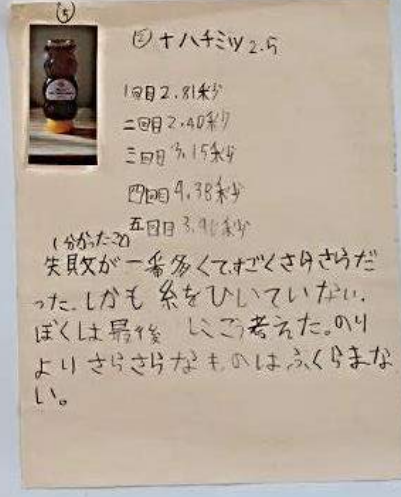 ⑤
② + ハチミツ 2.5
1回目 2.81秒
二回目 2.40秒
三回目 3.15秒
四回目 4.38秒
五回目 3.96秒
(分かったこと)
失敗が一番多くて、すごくさらさらだ
った。しかも 糸をひいていない。
ぼくは最後 にこう考えた。のり
よりさらさらなものはふくらまな
い。